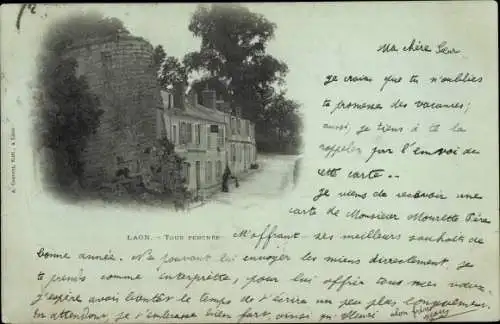 Ma chère Sœur
je crains que tu n'oublies
ta promesse des vacances;
aussi, je tiens à te la
rappeler par l'envoi de
cette carte...
Je viens de recevoir une
carte de Monsieur Mourette Père
LAON. - TOUR PENCHÉE
M'offrant ses meilleurs souhaits de
bonne année. Ne pouvant lui envoyer les miens directement, je
te prends comme interprète, pour lui offrir tous mes vœux.
J'espère avoir bientôt le temps de t'écrire un peu plus longuement
En attendant, je t'embrasse bien fort, ainsi qu'
ton frère